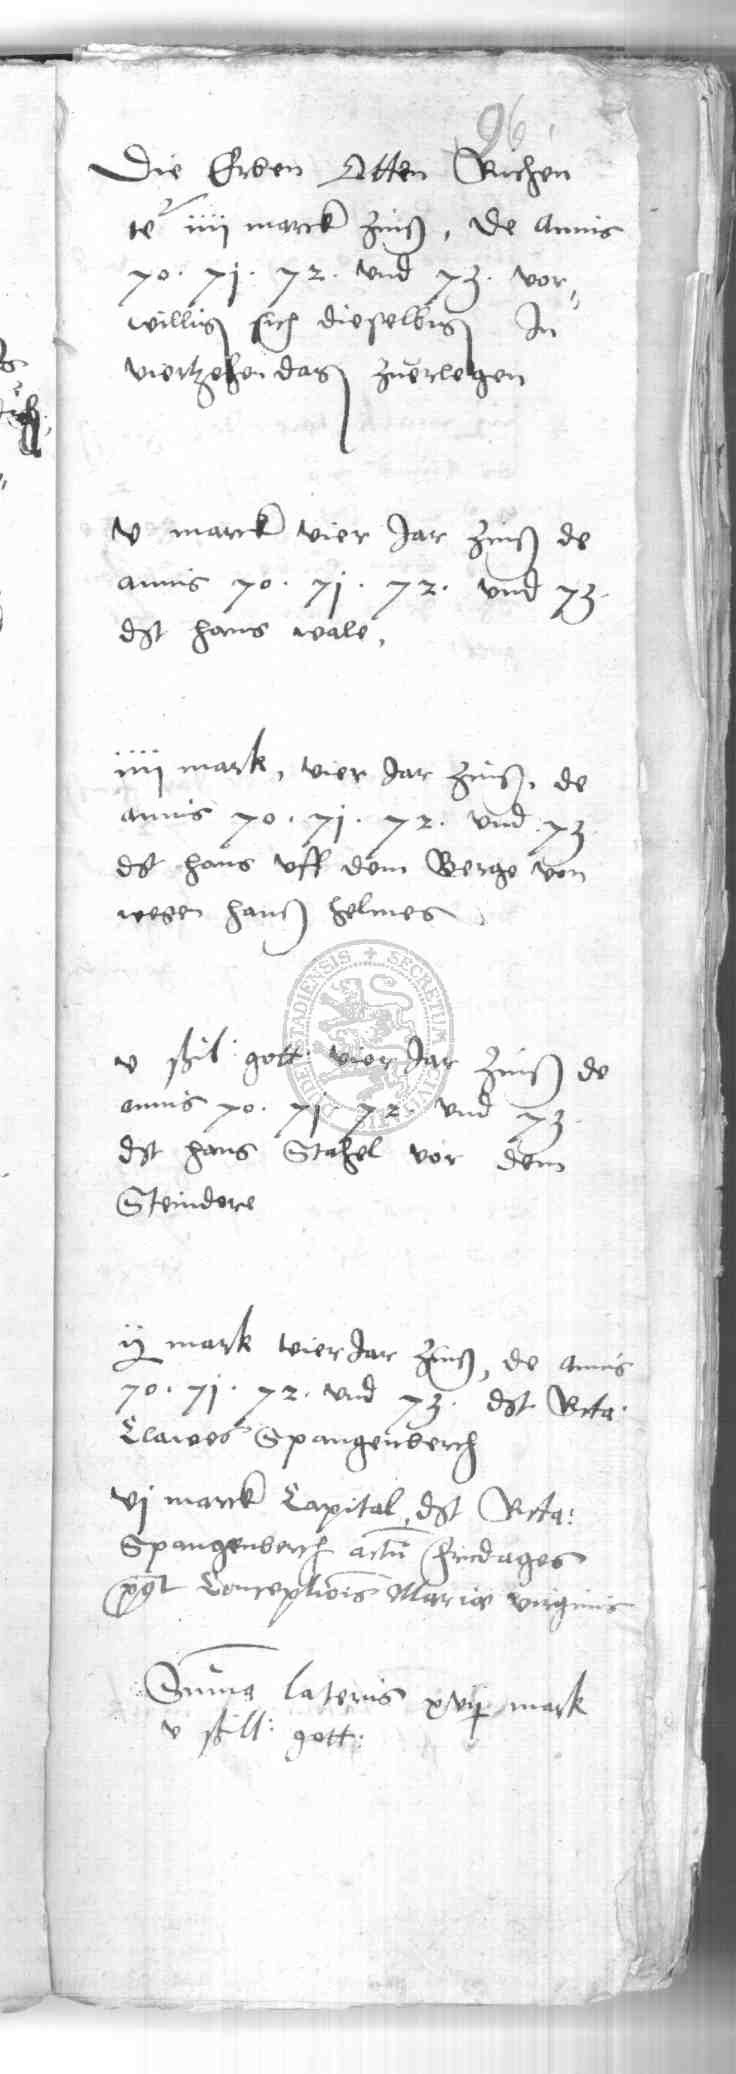 96.
Die Erben Otten Richen
te iiii marck Zinß, de Annis
70. 71. 72. vnd 73. vor„
willig sich dieselbig In
viertzehen dag zuerlegen
v marck vier Jar Zinß de
annis 70. 71. 72. vnd 73.
dt hans wale,
iiii mark, vier Jar Zinß, de
annis 70. 71. 72. vnd 73
dt hans vff dem Berge von
wegen hanß helmes
v ßil: gott: vier Jar Zinß de
annis 70. 71. 72. vnd 73.
dt hans Stahel vor dem
Steindore
ij mark vier Jar Zinß, de annis
70. 71. 72. vnd 73. dt Rcta:
Clawes Spangenberch
vj marck Capital, dt Rcta:
Spangenberch actū fridages
post Conceptiōis Mariæ virginis
Sūma lateris xvij mark
v ßill: gott:
SECRETUM CIVIUM